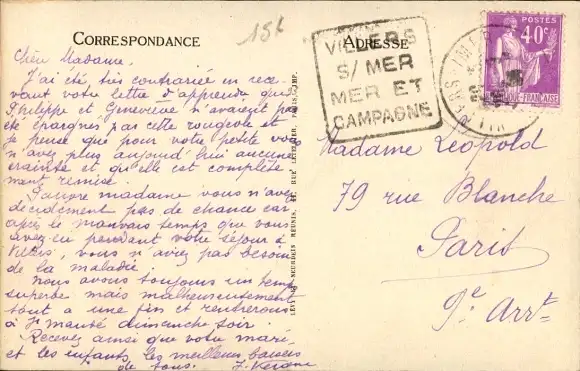 CORRESPONDANCE
Chère Madame,
J'ai été très contrariée en rece
vant votre lettre d'apprendre que
Philippe et Geneviève n'avaient pas
été épargnés par cette rougeole et
je pense que pour votre petite vous
n'avez plus aujourd'hui aucune
crainte et qu'elle est complète
ment remise.
Pauvre madame vous n'avez
décidément pas de chance car
après le mauvais temps que vous
avez eu pendant votre séjour à
Villers, vous n'aviez pas besoin
de la maladie.
Nous avons toujours un temps
superbe mais malheureusement
tout a une fin et rentrerons
à St Mandé dimanche soir.
Recevez ainsi que votre mari
et les enfants, les meilleurs baisers
de tous.
LÉVY ET NEURDEIN RÉUNIS, 44, RUE LETELLIER, PARIS IMP.
156
ADRESSE
VILLERS
S/ MER
MER ET
CAMPAGNE
POSTES
40c
RÉPUBLIQUE-FRANÇAISE
Madame Leopold
79 rue Blanche
Paris
9e Arrt